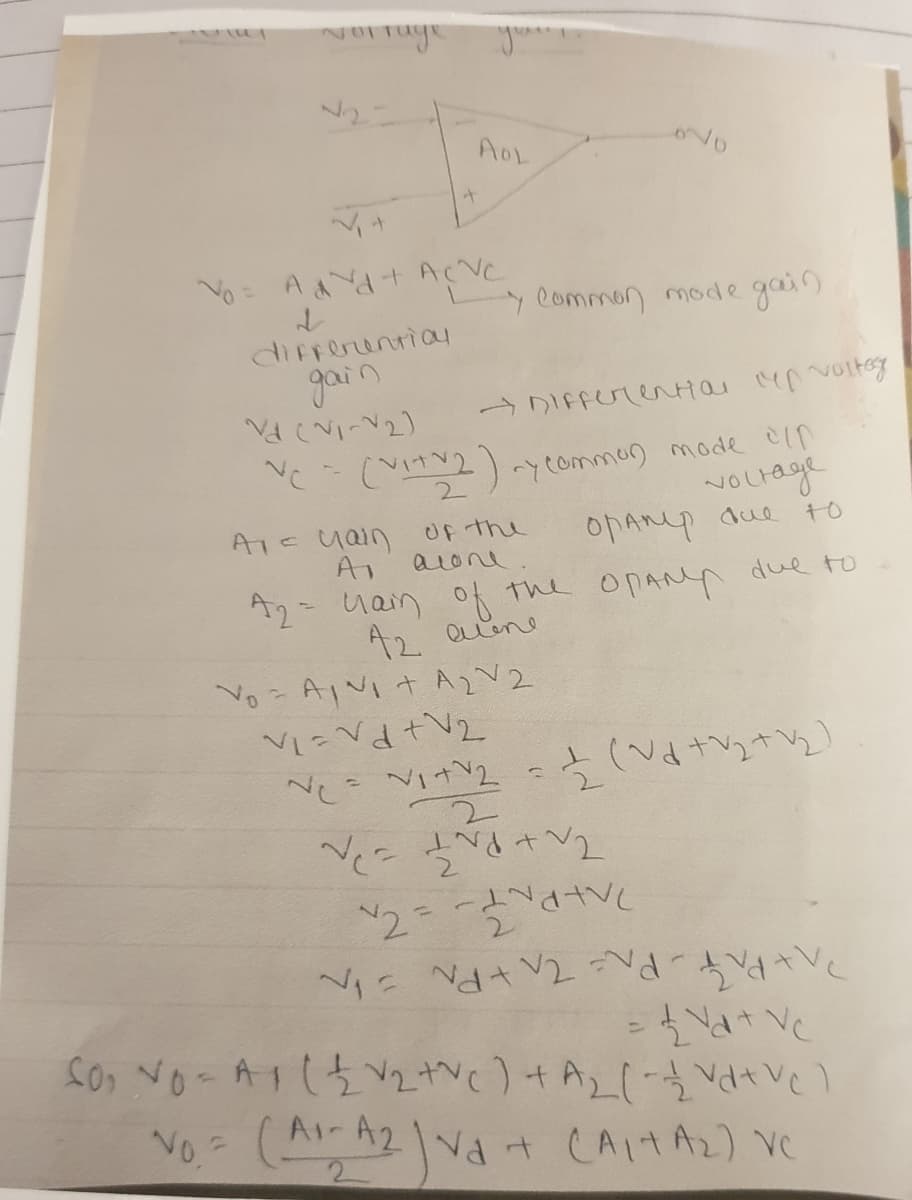 voltage gain.
V2 -
AOL
V0
+
V1 +
V0 = AdVd + ACVC
→ common mode gain
↓
differential
gain
Vd (V1-V2) → Differential i/p voltag
VC = (V1+V2 / 2) → common mode i/p
voltage
A1 = Gain of the OPAMP due to
A1 alone.
A2 = Gain of the OPAMP due to
A2 alone
V0 = A1V1 + A2V2
V1 = Vd + V2
VC = V1+V2 / 2 = 1/2 (Vd + V2 + V2)
VC = 1/2 Vd + V2
V2 = -1/2 Vd + VC
V1 = Vd + V2 = Vd - 1/2 Vd + VC
= 1/2 Vd + VC
So, V0 = A1 (1/2 V2 + VC) + A2 (-1/2 Vd + VC)
V0 = (A1-A2 / 2) Vd + (A1+A2) VC